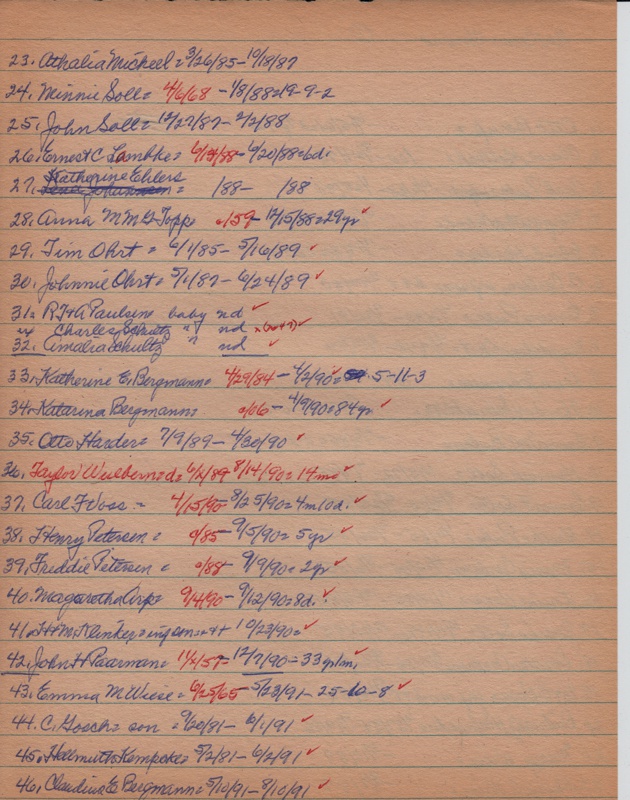 23. Athalia Mickeel = 3/26/85 - 10/18/87
24. Minnie Soll = 4/6/68 - 1/8/88 = 19-9-2
25. John Soll = 12/27/87 - 2/2/88
26. Ernest C Lambke = 6/14/88 - 6/20/88 = 6d.
27. Katherine Ehlers = /88 - /88
28. Anna M M G Topp = 0/59 - 12/15/88 = 29yr ✓
29. Tim Ohrt = 6/1/85 - 5/16/89 ✓
30. Johnnie Ohrt = 5/1/87 - 6/24/89 ✓
31. R J + A Paulsen = baby nd ✓
Charles Schultz " nd ✓
32. Amalia Schultz " nd ✓
33. Katherine E. Bergmann = 4/29/84 - 4/2/90 = 5-11-3
34. Katarina Bergmann = 0/06 - 4/9/90 = 84yr ✓
35. Otto Harder = 7/9/89 - 4/30/90 ✓
36. Taylor = 6/2/89 8/14/90 = 14mo ✓
37. Carl F Voss = 4/15/90 - 8/25/90 = 4m10d. ✓
38. Henry Petersen = 0/85 - 9/5/90 = 5yr ✓
39. Freddie Petersen = 0/88 - 9/9/90 = 2yr ✓
40. Magaretha Arp = 9/4/90 - 9/12/90 = 8d. ✓
41. H + M Klinker = 10/23/90 = ✓
42. John H Paarman = 11/2/57 - 12/7/90 - 33yr1m. ✓
43. Emma M Wiese = 6/25/65 - 5/23/91 - 25-10-8 ✓
44. C. Gosch = son = 9/20/81 - 6/1/91 ✓
45. Hellmuth Kempcke = 5/2/81 - 6/2/91 ✓
46. Claudius E Bergmann = 5/10/91 - 8/10/91 ✓